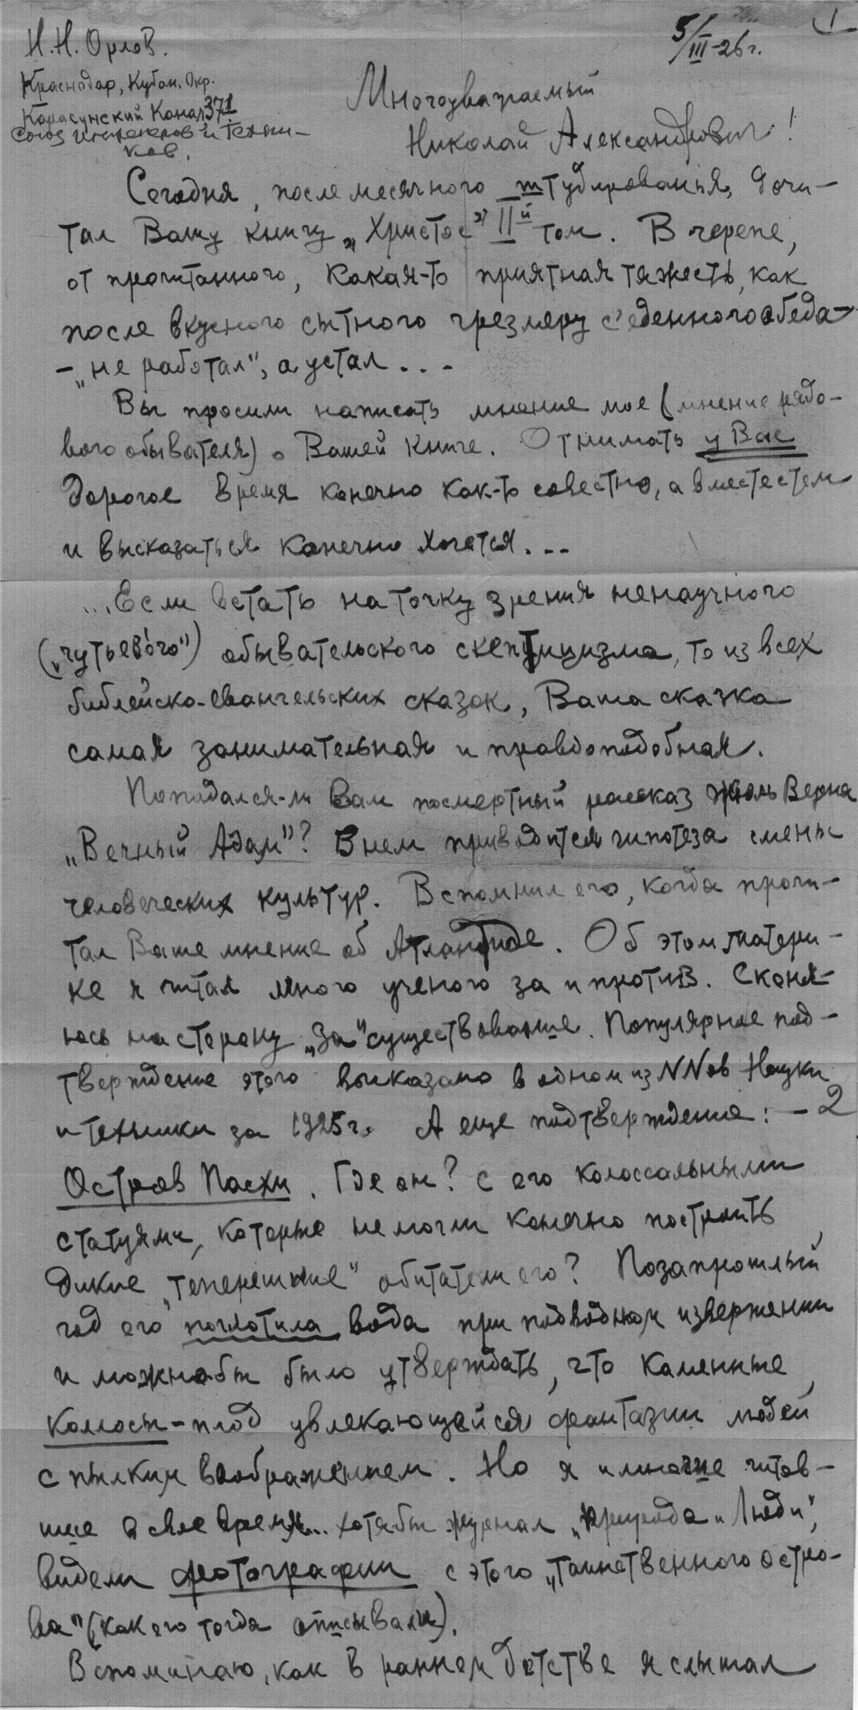 Н. Н. Орлов.
Краснодар, Кубан. Окр.
Карасунский Канал 371
Союз Инженеров и Техни-
ков.
5/III-26 г.
1
Многоуважаемый
Николай Александрович!
Сегодня, после месячного штудированья, дочи-
тал Вашу книгу „Христос" IIй том. В черепе,
от прочитанного, какая-то приятная тяжесть, как
после вкусного сытного чрезмеру с'еденного обеда-
- „не работал", а устал...
Вы просили написать мнение мое (мнение рядо-
вого обывателя) о Вашей книге. Отнимать у Вас
дорогое время конечно как-то совестно, а вместе с тем
и высказаться конечно хочется...
...Если встать на точку зрения ненаучного
(„чутьево́го") обывательского скептицизма, то из всех
библейско-евангельских сказок, Ваша сказка
самая занимательная и правдоподобная.
Попадался-ли Вам посмертный рассказ Жюль Верна
„Вечный Адам"? В нем приводится гипотеза смены
человеческих культур. Вспомнил его, когда прочи-
тал Ваше мнение об Атлантиде. Об этом матери-
ке я читал много ученого за и против. Склоня-
юсь на сторону „за" существование. Популярное под-
тверждение этого высказано в одном из NNов Науки
и техники за 1925 г. А еще подтверждение: - 2
Остров Пасхи. Где он? с его колоссальными
статуями, которые не могли конечно построить
дикие „теперешние" обитатели его? Позапрошлый
год его поглотила вода при подводном извержении
и можно бы было утверждать, что каменные
колоссы - плод увлекающейся фантазии людей
с пылким воображением. Но я и многие читав-
шие в свое время... хотя бы журнал „Природа и Люди",
видели фотографии с этого „таинственного остро-
ва" (как его тогда описывали).
Вспоминаю, как в раннем детстве я слышал